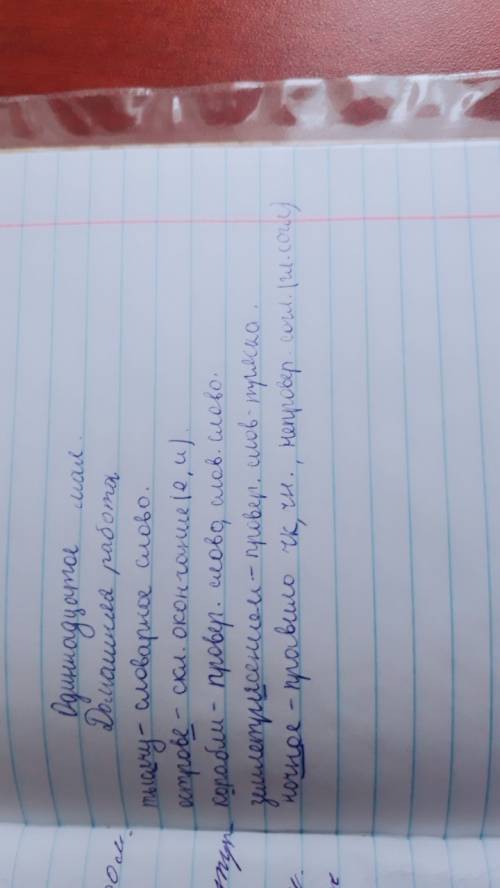 Одиннадцатое мая.
Домашняя работа
тысячу - словарное слово.
острове - скл. окончание (е, и).
корабли - провер. слово, слов. слово.
землетрясением - провер. слов - тряска.
ночное - правило чк, чн., непровер. согл. (гл. согл)